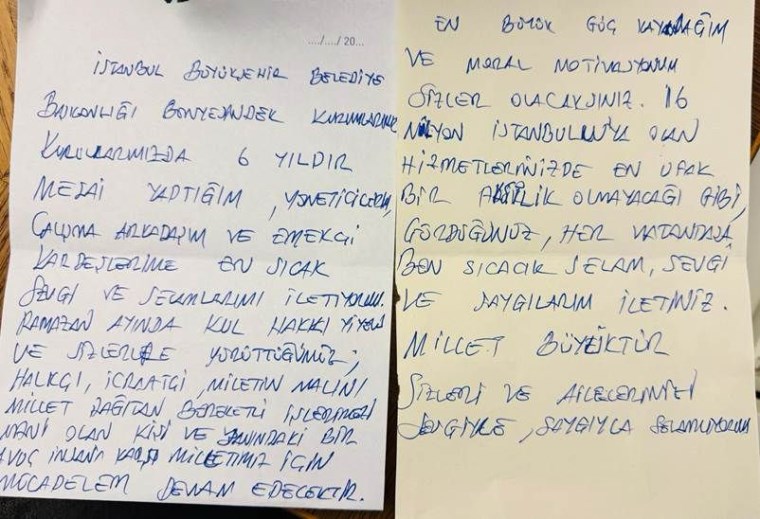 ..../..../ 20...
İSTANBUL BÜYÜKŞEHİR BELEDİYE
BAŞKANLIĞI BÜNYESİNDEK KURUMLARIMIZ
KURULLARIMIZDA 6 YILDIR
MESAİ YAPTIĞIM, YÖNETİCİLERİM,
ÇALIŞMA ARKADAŞIM VE EMEKÇİ
KARDEŞLERİME EN SICAK
SEVGİ VE SELAMLARIMI İLETİYORUM.
RAMAZAN AYINDA KUL HAKKI YİYEN
VE SİZLERLE YÜRÜTTÜĞÜMÜZ;
HALKÇI, İCRAATÇI, MİLLETİN MALINI
MİLLET DAĞITAN BEREKETLİ İŞLERİMİZİ
MANİ OLAN KİŞİ VE YANINDAKİ BİR
AVUÇ İNSANA KARŞI MİLLETİMİZ İÇİN
MÜCADELEM DEVAM EDECEKTİR.
EN BÜYÜK GÜÇ KAYNAĞIM
VE MORAL MOTİVASYONUM
SİZLER OLACAKSINIZ. 16
MİLYON İSTANBULLUYA OLAN
HİZMETLERİNİZDE EN UFAK
BİR AKSİLİK OLMAYACAĞI GİBİ,
GÖRDÜĞÜNÜZ, HER VATANDAŞA
BEN SICACIK SELAM, SEVGİ
VE SAYGILARIM İLETİNİZ.
MİLLET BÜYÜKTÜR
SİZLERİ VE AİLELERİNİZİ
SEVGİYLE, SAYGIYLA SELAMLIYORUM